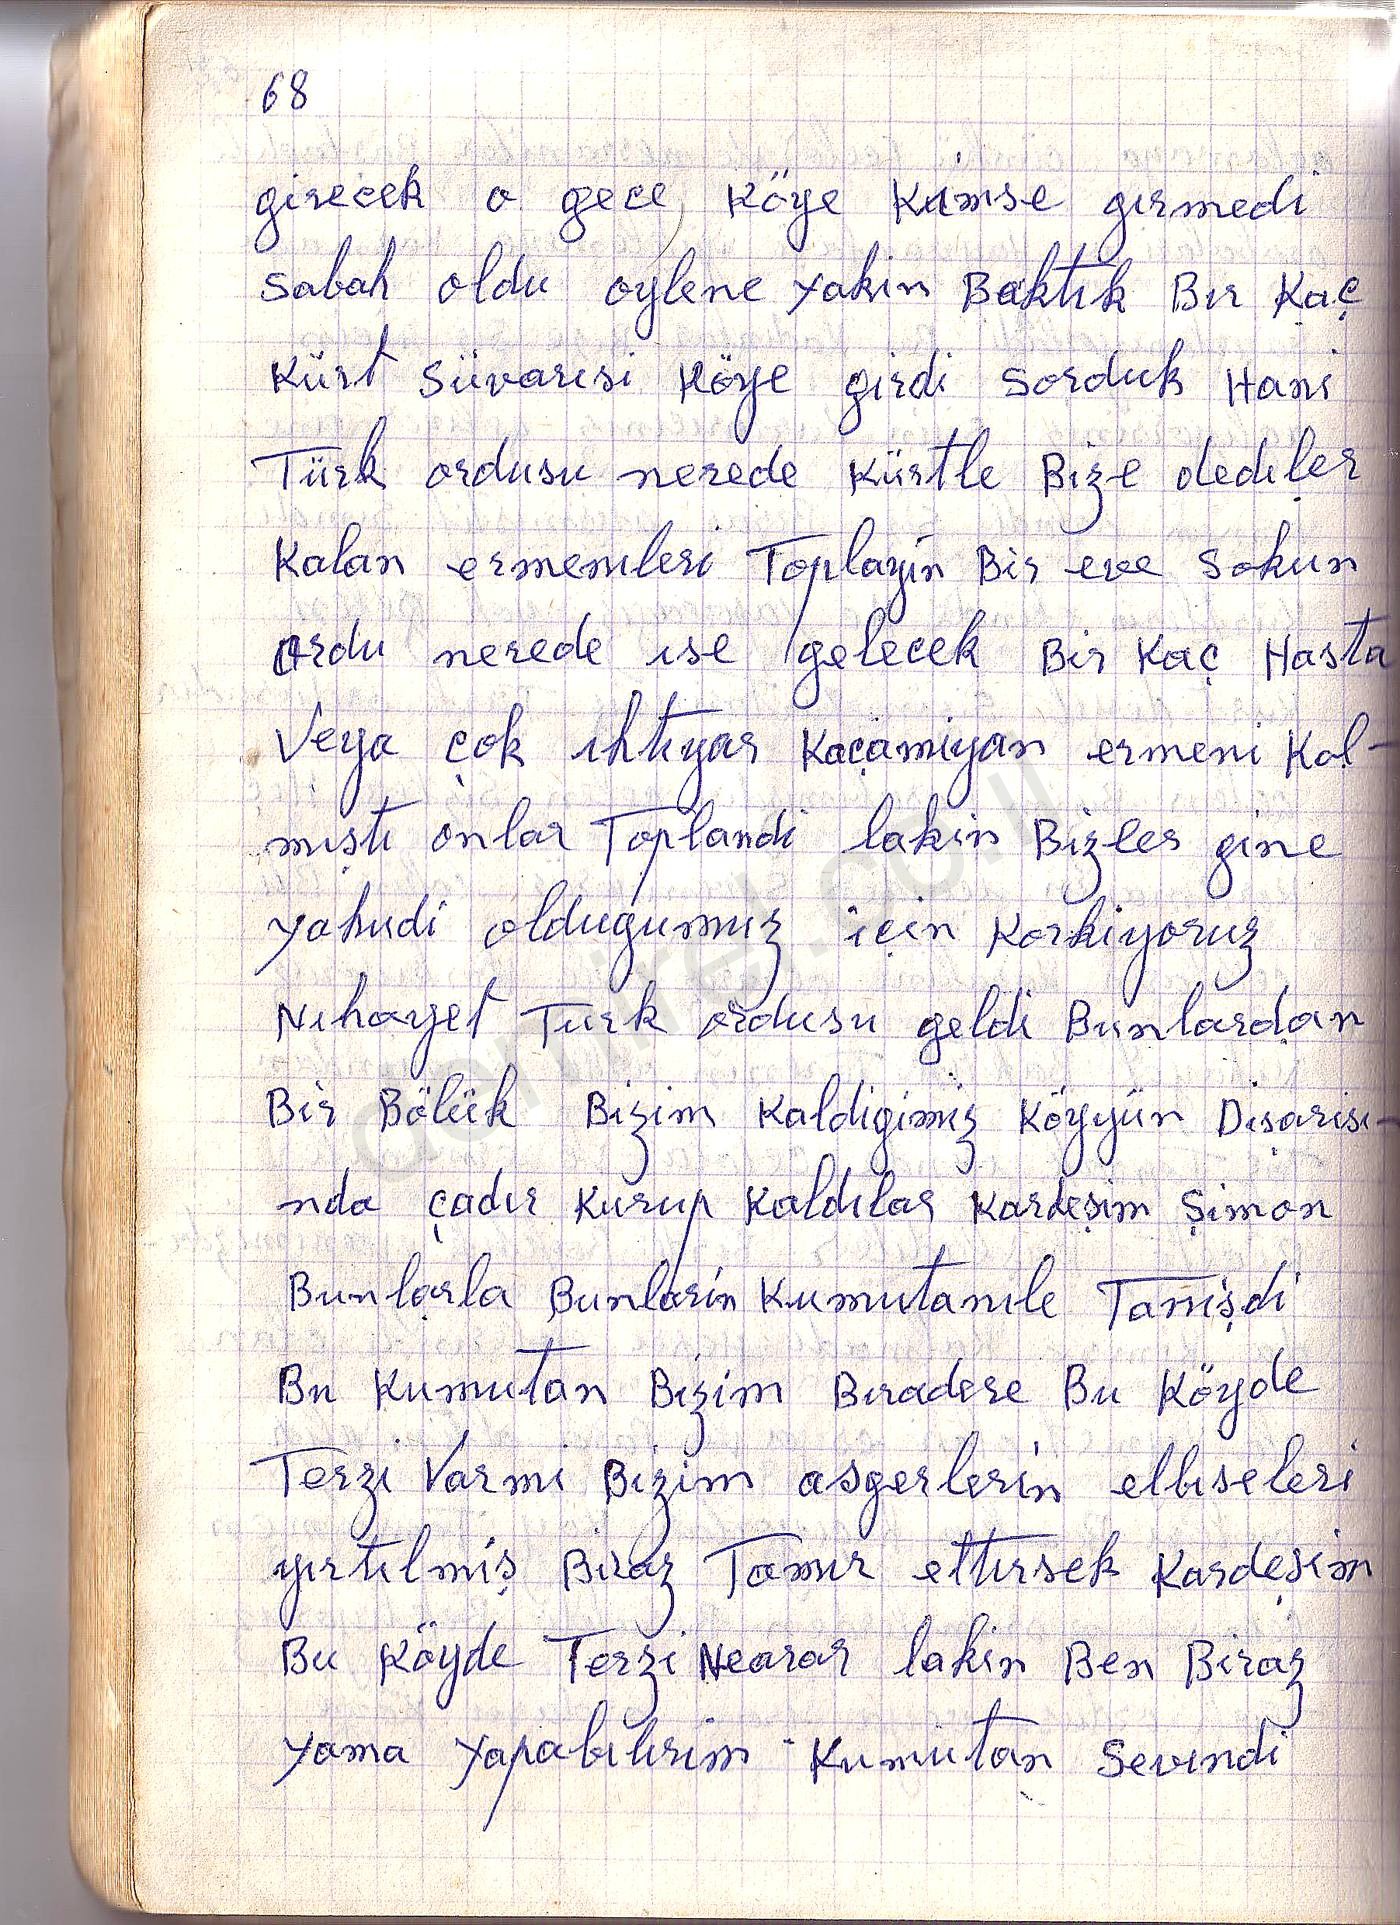 68
girecek o gece, Köye Kimse girmedi
Sabah oldu oylene yakin Baktık Bır Kaç
Kürt Süvarısi Köye girdi Sorduk Hani
Türk ordusu nerede Kürtle Bize dedıler
Kalan ermenıleri Toplayin Bir eve Sokun
ordu nerede ıse gelecek Bir Kaç Hasta
Veya çok ıhtıyar Kaçamiyan ermeni Kal-
mıştı onlar Toplandi lakin Bizler gine
yahudi oldugumuz için Korkiyoruz
Nıhayet Türk ordusu geldi Bunlardan
Bir Bölük Bizim Kaldigimiz Köyyün Dişarisı-
nda çadır Kurup Kaldılar Kardeşim Şimon
Bunlarla Bunlarin Kumutanıle Tanişdi
Bu Kumutan Bizim Bıradere Bu Köyde
Terzi Varmi Bizim asgerlerin elbıseleri
yırtılmiş Biraz Tamır ettırsek Kardeşim
Bu Köyde Terzi Nearar lakin Ben Biraz
Yama Yapabılırim Kumutan Sevındi
demirel.co.il